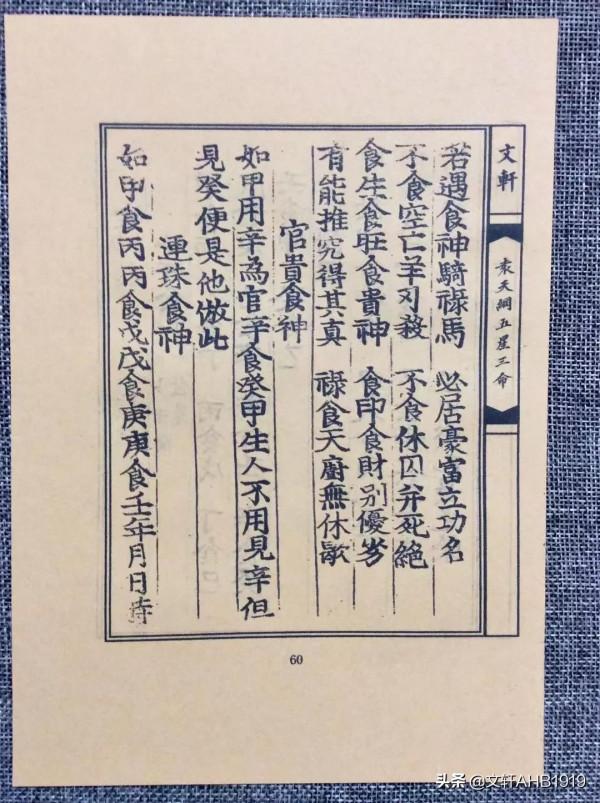 文軒
袁天綱五星三命
若遇食神騎祿馬 必居豪富立功名
不食空亡羊刃殺 不食休囚并死絕
食生食旺食貴神 食印食財別優劣
有能推究得其真 祿食天廚無休歇
官貴食神
如甲用辛為官辛食癸甲生人不用見辛但
見癸便是他倣此
連珠食神
如甲食丙丙食戊戊食庚庚食壬年月日時
60
头条 @文轩AHB1919